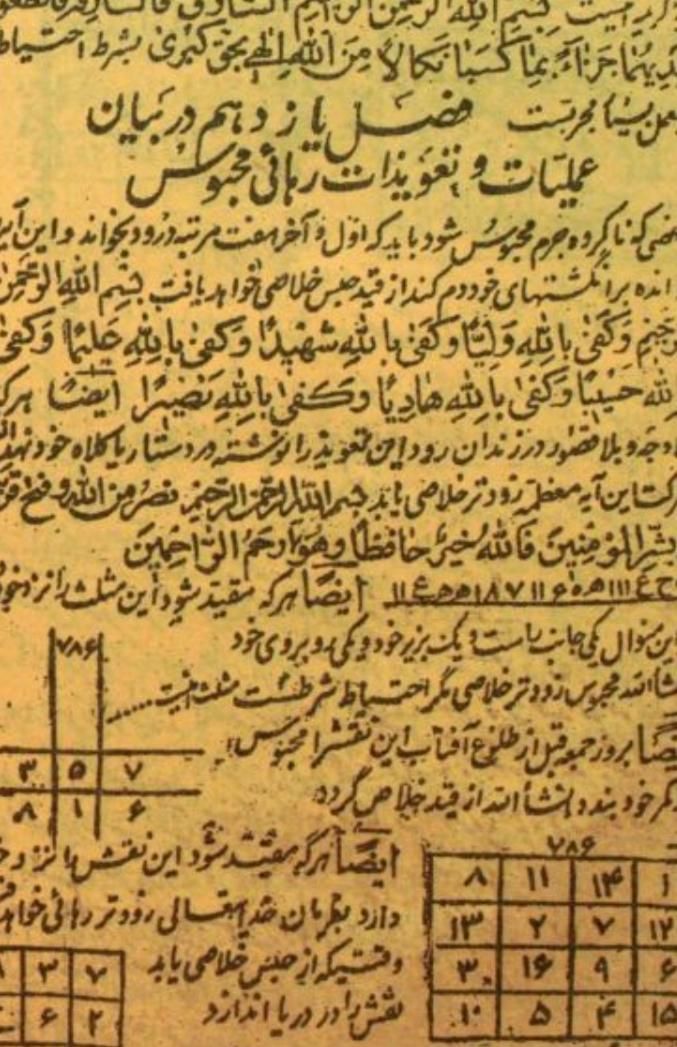 بسم الله الرحمن الرحیم
جزاءً بما کسبا نکالا من الله الهی بحق کبری بشرط احتیاط
مجربست
فصل یازدهم در بیان
عملیات و تعویذات رهائی محبوس
که ناکرده جرم محبوس شود باید که اول و آخر هفت مرتبه درود بخواند و این آیه
برانگشتهای خود دم کند از قید حبس خلاصی خواهد یافت بسم الله الرحمن
وکفی بالله ولیًا وکفی بالله شهیدًا وکفی بالله علیمًا وکفی
بالله حسیبًا وکفی بالله هادیًا وکفی بالله نصیرًا ایضًا هرکه
بلا قصور در زندان رود این تعویذ را نوشته در دستار یا کلاه خود نهد
برکت این آیه معظمه زودتر خلاصی یابد بسم الله الرحمن الرحیم نصر من الله وفتح قریب
وبشر المؤمنین فالله خیرٌ حافظًا وهو ارحم الراحمین
ایضًا هرکه مقید شود این مثلث را نزد خود
این منوال یکی جانب راست و یک بزیر خود و یکی روبروی خود
محبوس زودتر خلاصی مگر احتیاط شرطست مثلث اینست
ایضًا بروز جمعه قبل از طلوع آفتاب این نقش را محبوس
کمر خود بندد انشأالله از قید خلاص گردد
۷۸۶
۳ ۵ ۷
۸ ۱ ۶
۷۸۶
۸ ۱۱ ۱۴ ۱
۱۳ ۲ ۷ ۱۲
۳ ۱۶ ۹ ۶
۱۰ ۵ ۴ ۱۵
ایضًا هرکه مقید شود این نقش را نزد خود
دارد بفرمان خدایتعالی زودتر رهائی خواهد
وقتیکه از حبس خلاصی یابد
نقش را در دریا اندازد
۳ ۷
۶ ۲